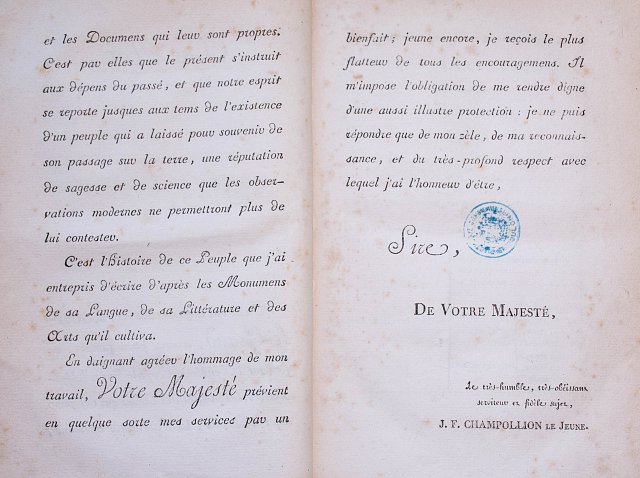 et les Documens qui leur sont propres.
C'est par elles que le présent s'instruit
aux dépens du passé, et que notre esprit
se reporte jusques aux tems de l'existence
d'un peuple qui a laissé pour souvenir de
son passage sur la terre, une réputation
de sagesse et de science que les obser-
vations modernes ne permettront plus de
lui contester.
C'est l'Histoire de ce Peuple que j'ai
entrepris d'écrire d'après les Monumens
de sa Langue, de sa Littérature et des
Arts qu'il cultiva.
En daignant agréer l'hommage de mon
travail, Votre Majesté prévient
en quelque sorte mes services par un
bienfait ; jeune encore, je reçois le plus
flatteur de tous les encouragemens. Il
m'impose l'obligation de me rendre digne
d'une aussi illustre protection : je ne puis
répondre que de mon zèle, de ma reconnais-
sance, et du très-profond respect avec
lequel j'ai l'honneur d'être,
Sire,
DE VOTRE MAJESTÉ,
Le très-humble, très-obéissant
serviteur et fidèle sujet,
J. F. CHAMPOLLION LE JEUNE.